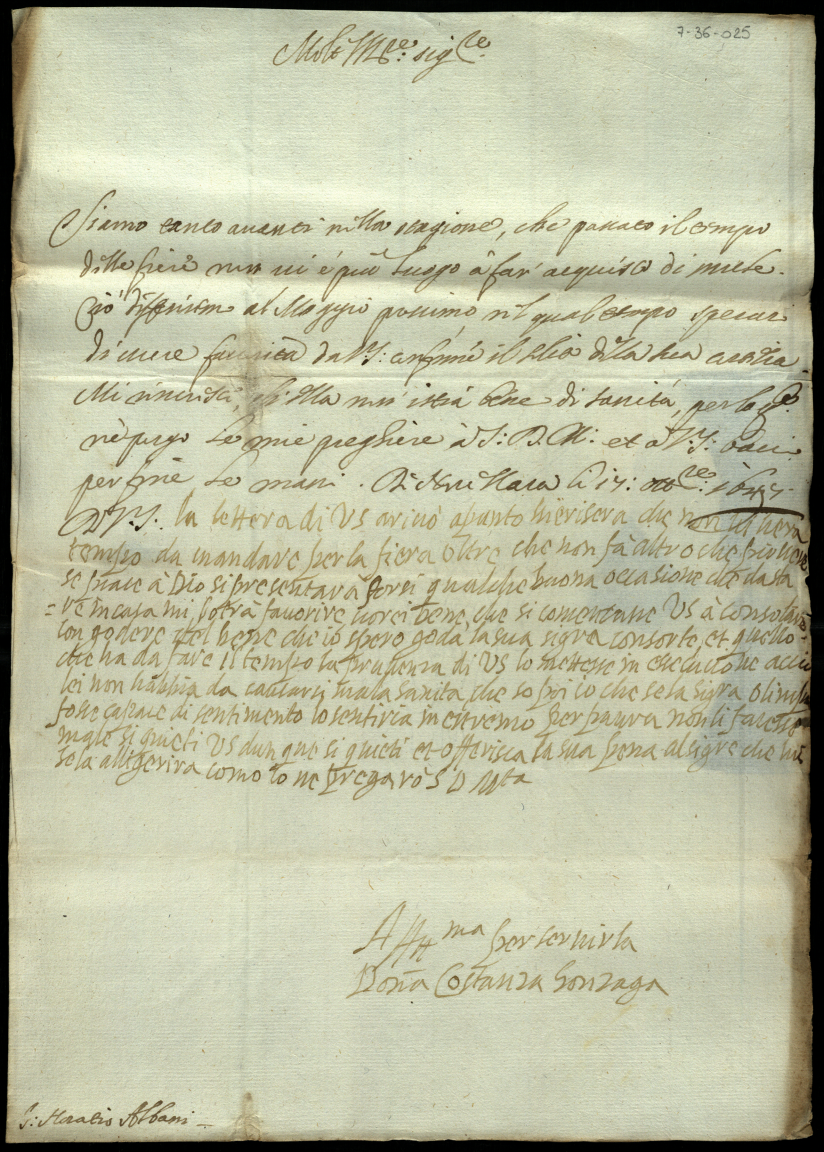 7-36-025
Molt Ill.re sig.re
Siamo tanto avanti nella stagione, che passato il tempo
delle fiere non vi é più luogo à far' acquisto di mule.
Ciò differiscon al Maggio prossimo, nel qual tempo sperarei
di essere favorita da V.S: il della sua
Mi rincresce, ch'ella non' istia bene di sanità, per lo q.e
nè porgo le mie preghiere à S: D. M: et à V.S: bacio
per fine le mani. Di Novellara li 17: ott.re 1647.
D V.S. la lettera di VS arivò apunto hierisera che non vi hera
tempo da mandare per la fiera oltre che non fà altro che piovere
se piace à Dio si presentarà forsi qualche buona occasione che da sta
= re in casa mi potrà favorire vorei bene che si comentasse VS à consolarsi
con godere del bene che io spero goda la sua sig.ra consorte, et quello
che ha da fare il tempo la prudenza di VS lo mettesse in esecutione acciò
lei non habbia da cautarsi mala sanità che so poi io che se la sig.ra olimpia
fosse capace di sentimento lo sentiria in estremo per paura non li facesse
male si quieti VS dunque si quieti et offerisca la sua pena al sig.re che lui
se la alligerira como io ne pregarò S D M.ta
Aff.ma per servirla
Donã Costanza Gonzaga
S: Horatio Albani